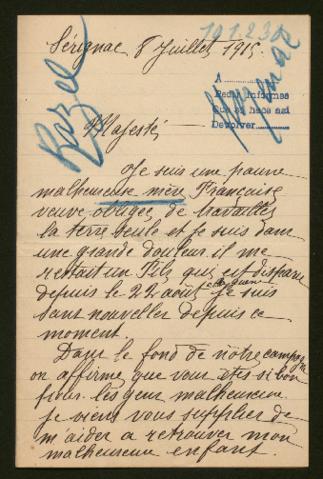 101230
Sérignac 8 Juillet 1915
A
Pedir informes
Que se hace así
Devolver
Majesté,
Je suis une pauvre
malheureuse mère Française
veuve obligée de travailler
la terre seule et je suis dans
une grande douleur. il me
restait un fils qui est disparu
depuis le 22 août je suis
sans nouvelles depuis ce
moment.
Dans le fond de notre campagne
on affirme que vous etes si bon
pour les gens malheureux
je viens vous supplier de
m'aider a retrouver mon
malheureux enfant.